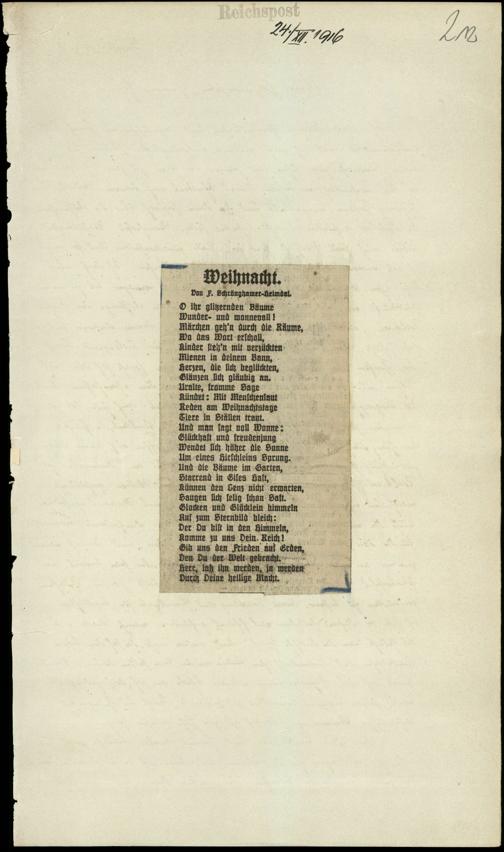 Reichspost
24/XII. 1916
Weihnacht.
Von F. Schrönghamer-Heimdal.
O ihr glitzernden Bäume
Wunder- und wonnevoll!
Märchen geh'n durch die Räume,
Wo das Wort erscholl,
Kinder steh'n mit verzückten
Mienen in deinem Bann,
Herzen, die sich beglückten,
Glänzen sich gläubig an.
Uralte, fromme Sage
Kündet: Mit Menschenlaut
Reden am Weihnachtstage
Tiere in Ställen traut.
Und man sagt voll Wonne:
Glückhaft und freudenjung
Wendet sich höher die Sonne
Um eines Hirschleins Sprung.
Und die Bäume im Garten,
Starrend in Eises Haft,
Können den Lenz nicht erwarten,
Saugen sich selig schon Saft.
Glocken und Glöcklein himmeln
Auf zum Sternbild bleich:
Der Du bist in den Himmeln,
Komme zu uns Dein Reich!
Gib uns den Frieden auf Erden,
Den Du der Welt gebracht.
Herr, laß ihn werden, ja werden
Durch Deine heilige Macht.